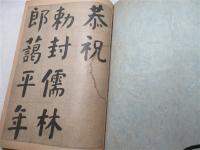 恭祝
勅封儒林
郎蔼平年